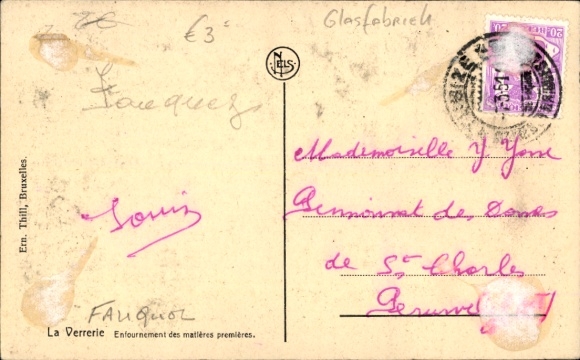 €3
Glasfabriek
NELS
20
20
Fauquez
Ern. Thill, Bruxelles.
Mademoiselle Y. Yme
Pensionnat des Dames
de St Charles
Louis
FAUQUOZ
La Verrerie Enfournement des matières premières.